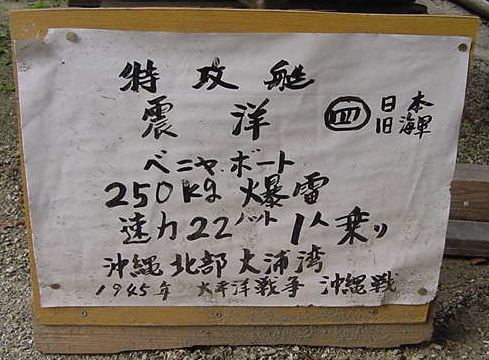 特攻艇
震洋 四 日本
旧海軍
ベニヤボート
250kg 爆雷
速力22ノット 1人乗り
沖縄北部大浦湾
1945年 太平洋戦争 沖縄戦